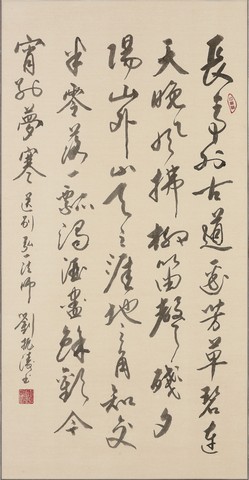 長亭外古道邊芳草碧連
天晚風拂柳笛聲殘夕
陽山外山天之涯地之角知交
半零落一瓢濁酒盡餘歡今
宵別夢寒 送別 弘一法師 劉振濤書